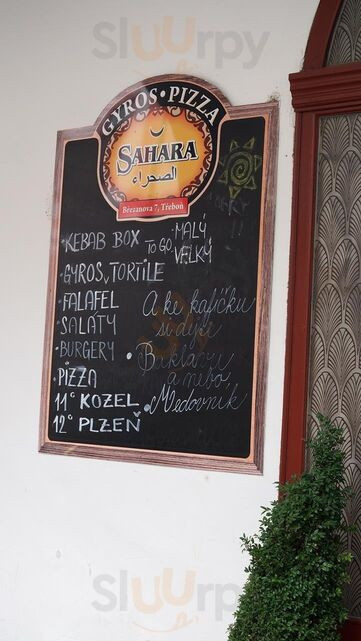 Sluurpy
GYROS • PIZZA
SAHARA
الصحراء
Březanova 7, Třeboň
• KEBAB BOX TO GO • MALÝ
VELKÝ
• GYROS, TORTILE
• FALAFEL
• SALÁTY
• BURGERY
• PIZZA
11° KOZEL
12° PLZEŇ
A ke kafíčku
si dejte
• Baklavu
a nebo
• Medovník
Sluurpy